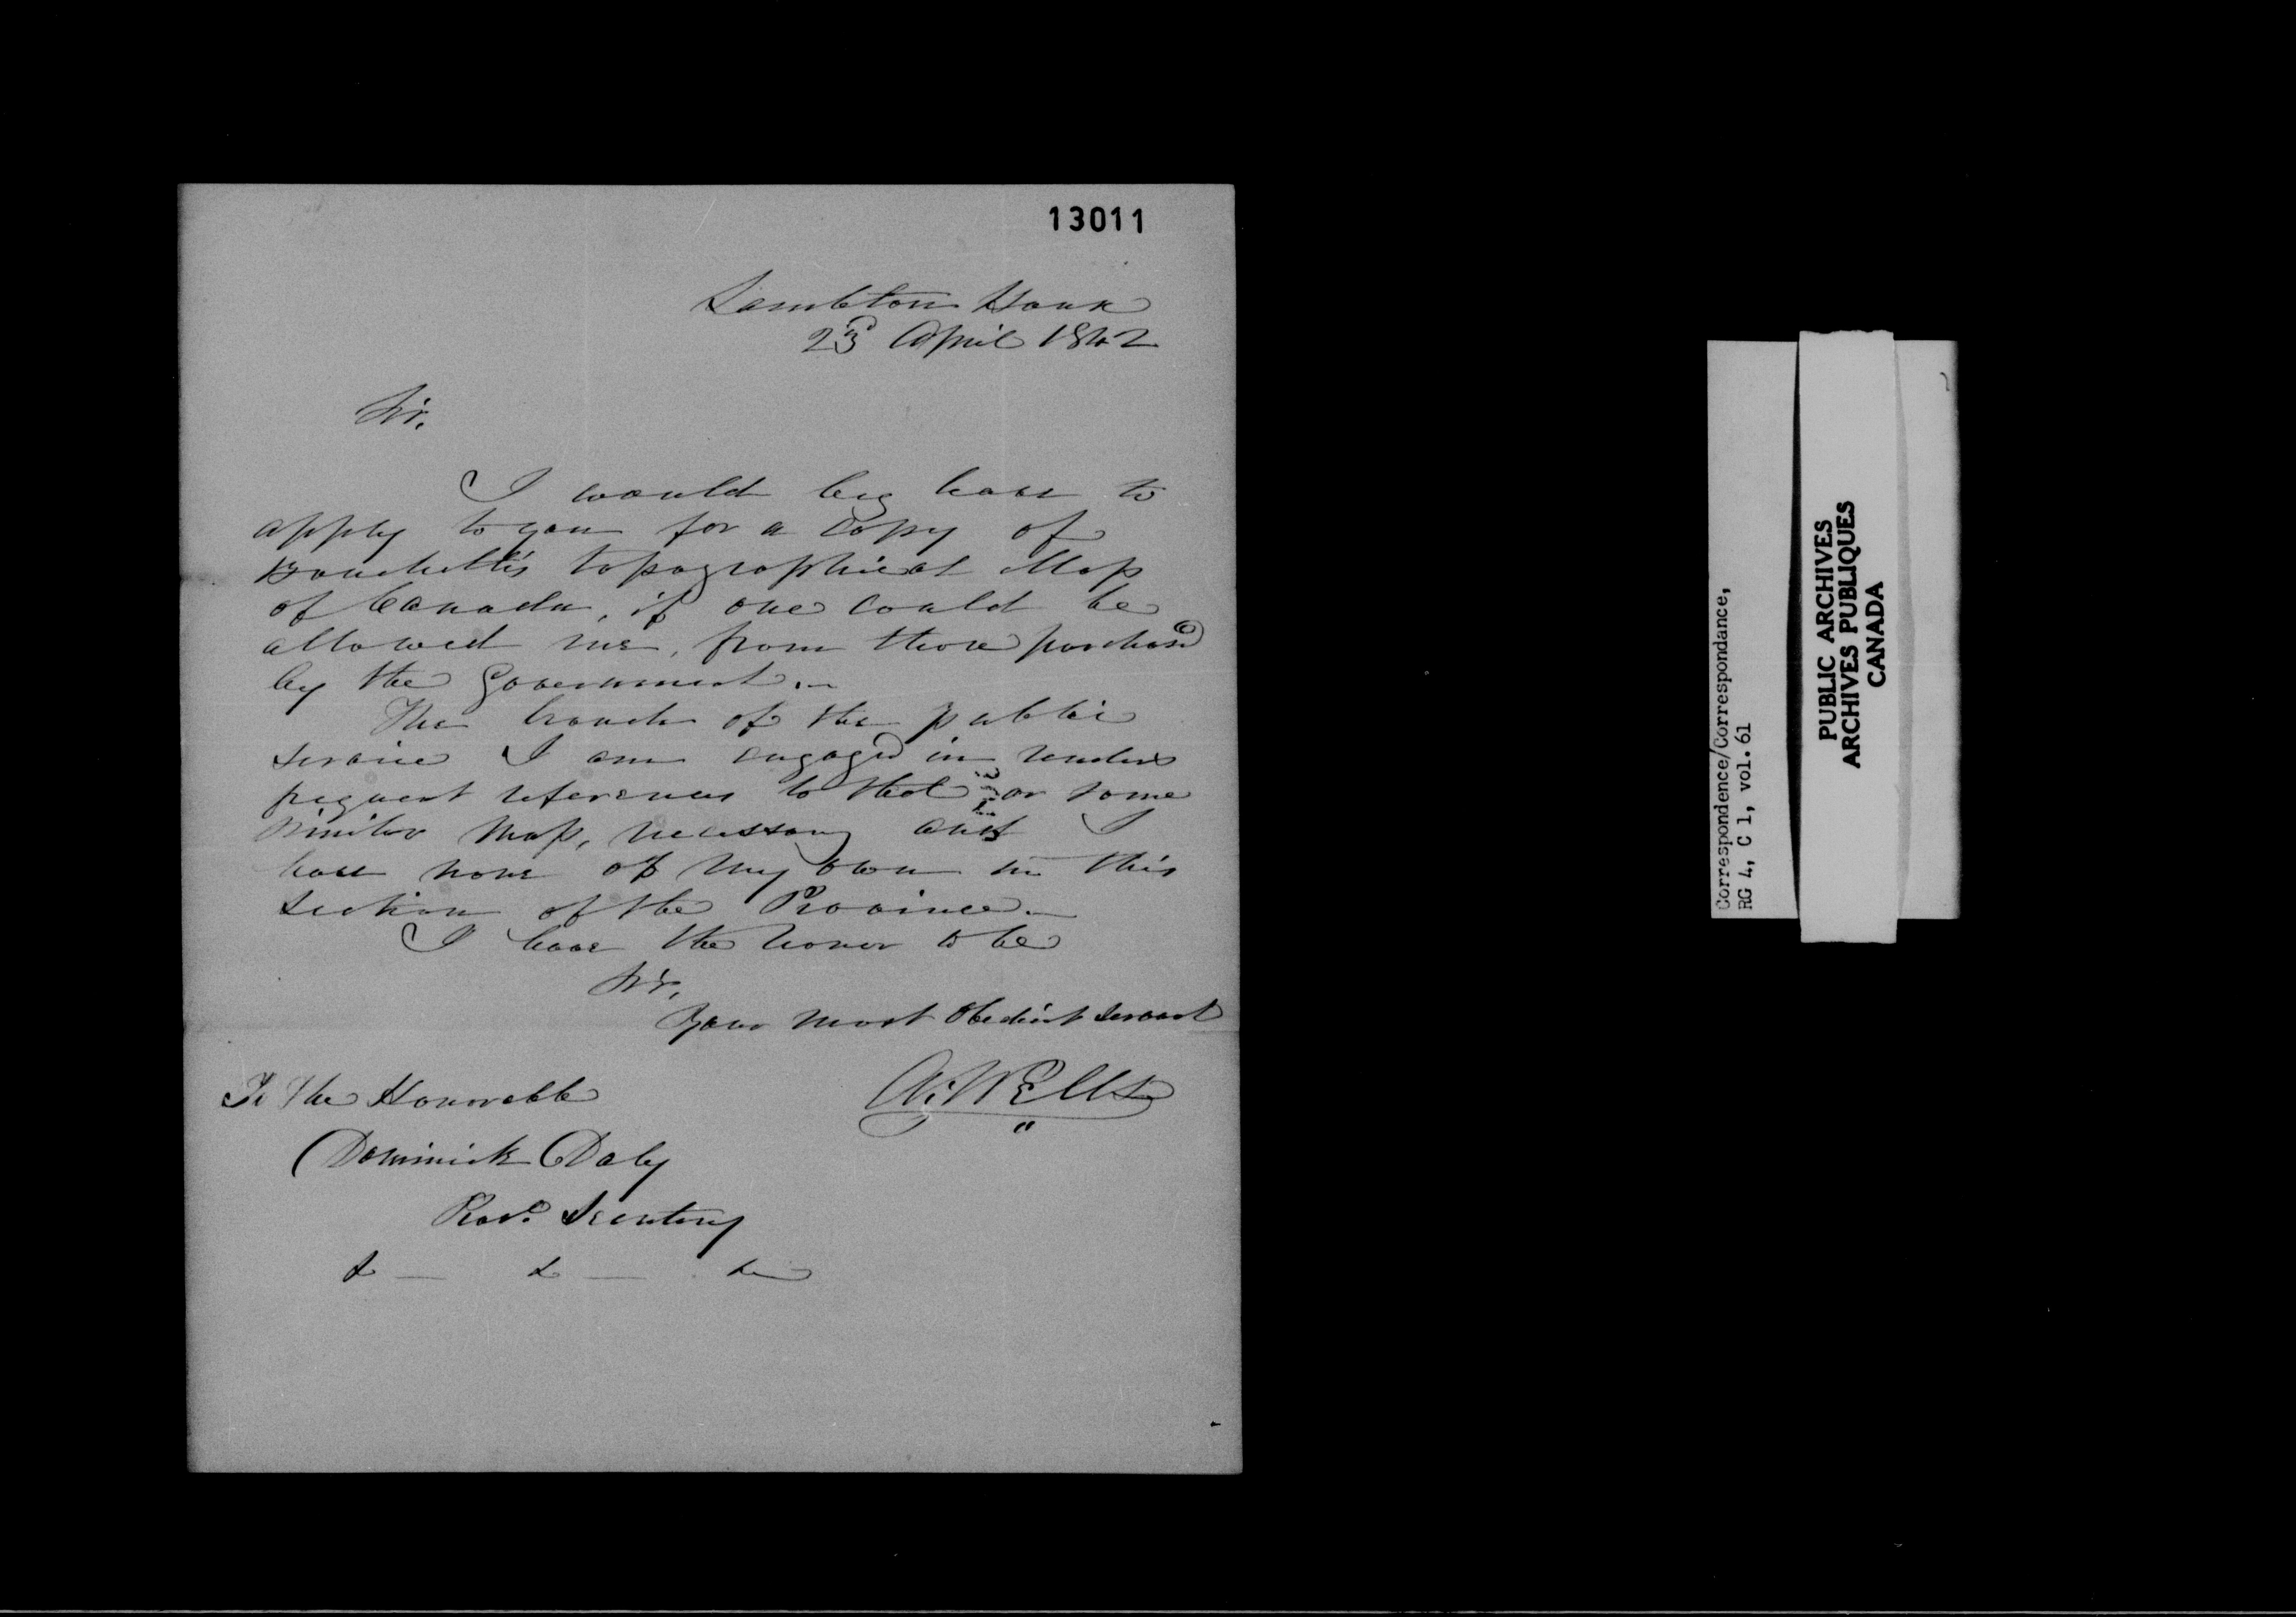 13011
Lambton House
23d April 1842
Sir,
I would beg leave to
apply to you for a copy of
Bouchette's topographical Map
of Canada, if one could be
allowed me, from those purchased
by the Government.—
The branch of the public
service I am engaged in renders
frequent references to that or some
similar Map, necessary and I
have none of my own in this
section of the Province.—
I have the honor to be
Sir,
Your most obedient servant
A. Wells
To the Honorable
Dominick Daly
Prov. Secretary
& — & — &
Correspondence/Correspondance,
RG 4, C 1, vol. 61
PUBLIC ARCHIVES
ARCHIVES PUBLIQUES
CANADA